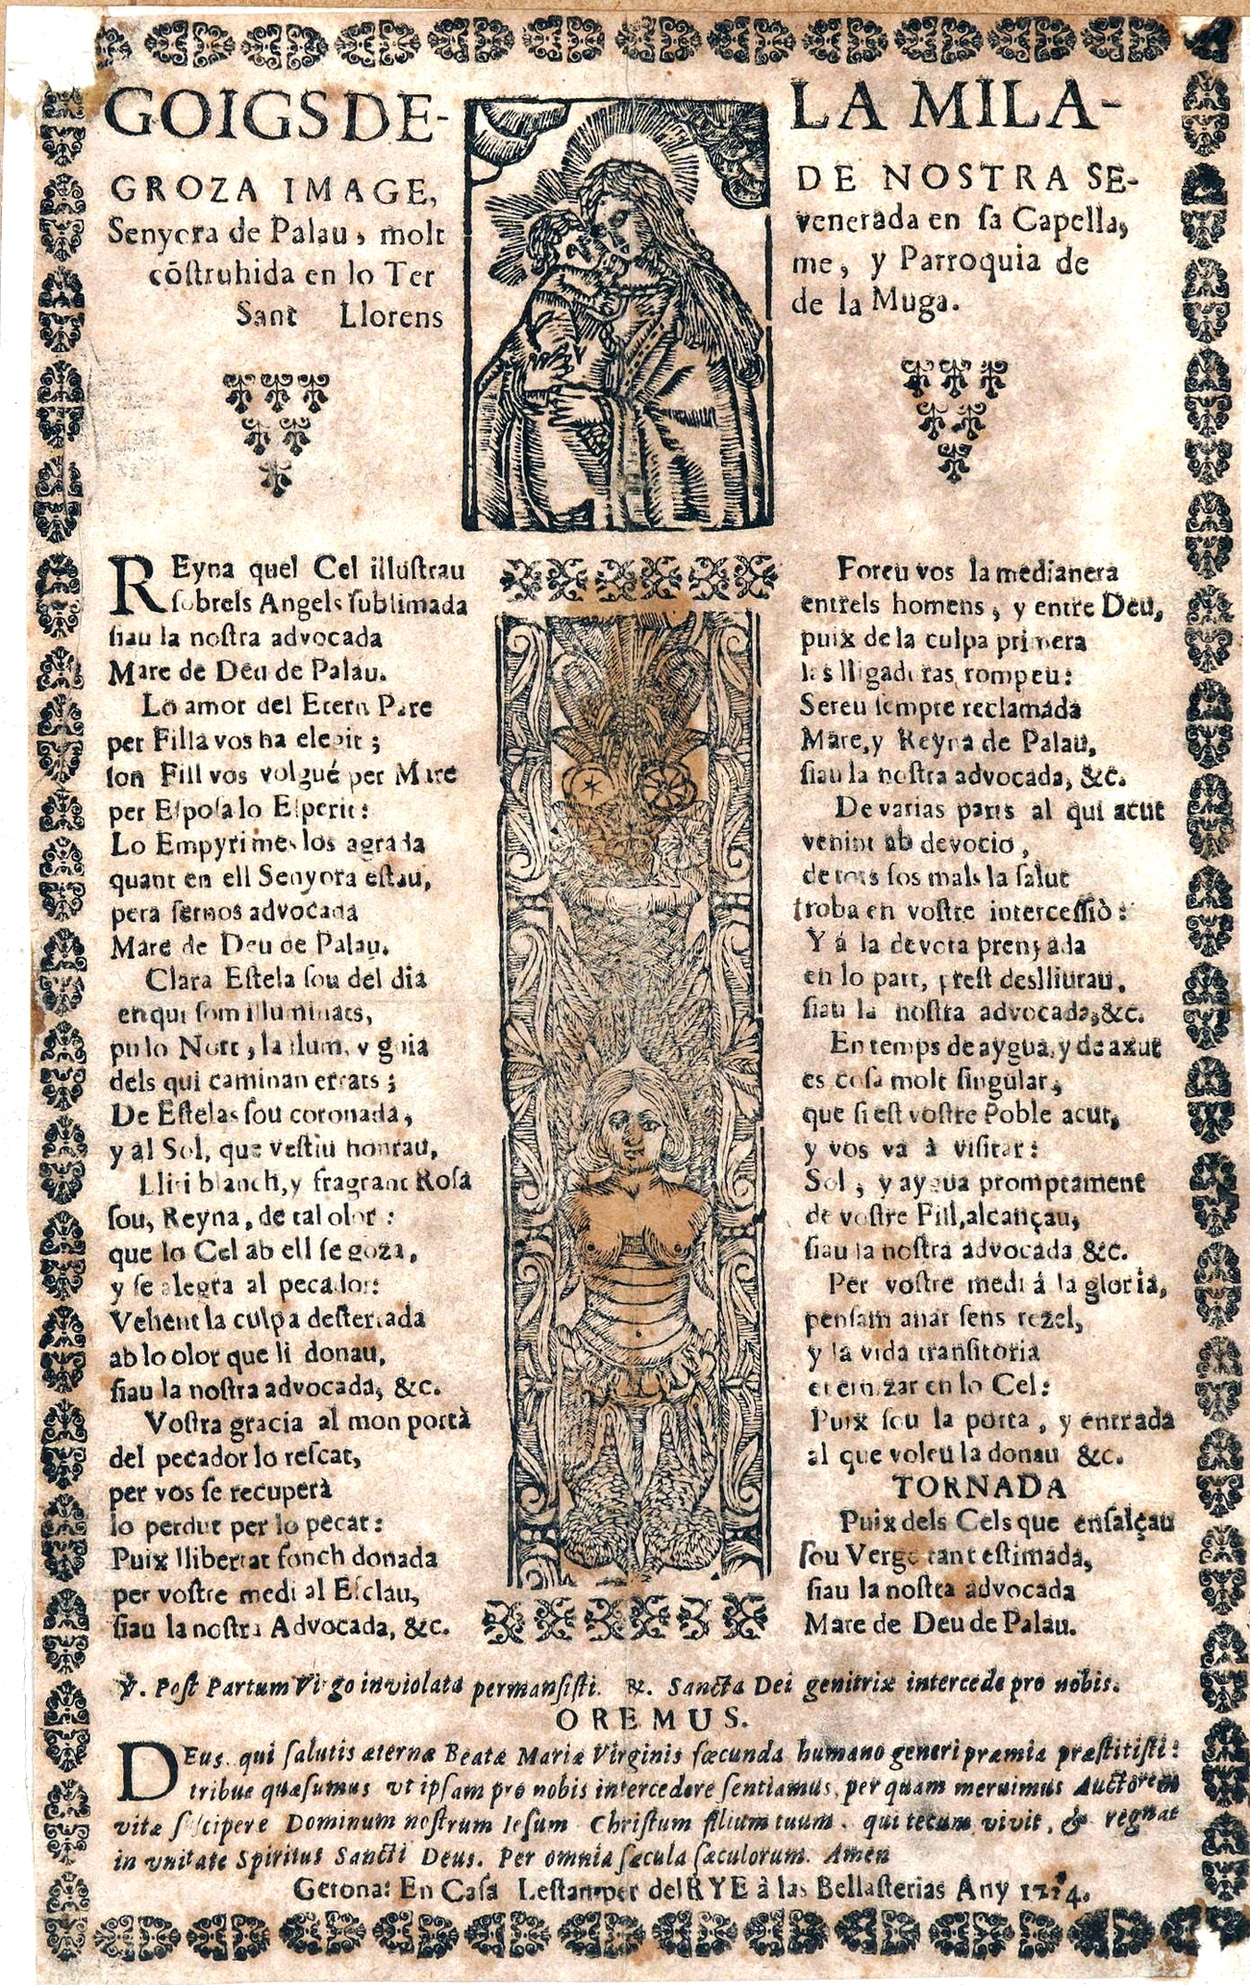 GOIGS DE-
LA MILA-
GROZA IMAGE,
DE NOSTRA SE-
Senyora de Palau, molt
venerada en sa Capella,
cõstruhida en lo Ter
me, y Parroquia de
Sant Llorens
de la Muga.
REyna quel Cel illustrau
sobrels Angels sublimada
siau la nostra advocada
Mare de Deu de Palau.
Lo amor del Etern Pare
per Filla vos ha elegit;
son Fill vos volgué per Mare
per Esposa lo Esperit:
Lo Empyri mes los agrada
quant en ell Senyora estau,
pera sernos advocada
Mare de Deu de Palau.
Clara Estela sou del dia
en qui som illuminats,
pu lo Nort, la llum, y guia
dels qui caminan errats;
De Estelas sou coronada,
y al Sol, que vestiu honrau,
Lliri blanch, y fragrant Rosa
sou, Reyna, de tal olor:
que lo Cel ab ell se goza,
y se alegra al pecador:
Vehent la culpa desterrada
ab lo olor que li donau,
siau la nostra advocada, &c.
Vostra gracia al mon portà
del pecador lo rescat,
per vos se recuperà
lo perdut per lo pecat:
Puix llibertat fonch donada
per vostre medi al Esclau,
siau la nostra Advocada, &c.
Foreu vos la medianera
entrels homens, y entre Deu,
puix de la culpa primera
las lligaduras rompeu:
Sereu sempre reclamada
Mare, y Reyna de Palau,
siau la nostra advocada, &c.
De varias parts al qui acut
venint ab devocio,
de tots sos mals la salut
troba en vostre intercessiò:
Y á la devota prenyada
en lo part, prest deslliurau.
siau la nostra advocada, &c.
En temps de aygua, y de axut
es cosa molt singular,
que si est vostre Poble acut,
y vos va à visitar:
Sol, y aygua promptament
de vostre Fill, alcançau,
siau la nostra advocada &c.
Per vostre medi á la gloria,
pensam anar sens rezel,
y la vida transitoria
eternizar en lo Cel:
Puix sou la porta, y entrada
al que voleu la donau &c.
TORNADA
Puix dels Cels que ensalçau
sou Verge tant estimada,
siau la nostra advocada
Mare de Deu de Palau.
℣. Post Partum Virgo inviolata permansisti. ℟. Sancta Dei genitrix intercede pro nobis.
OREMUS.
DEus qui salutis æternæ Beatæ Mariæ Virginis fœcunda humano generi præmia præstitisti:
tribue quæsumus vt ipsam pro nobis intercedere sentiamus, per quam meruimus Auctorem
vitæ suscipere Dominum nostrum Iesum Christum filium tuum. qui tecum vivit, & regnat
in vnitate Spiritus Sancti Deus. Per omnia sæcula sæculorum. Amen
Gerona: En Casa Lestamper del RYE à las Bellasterias Any